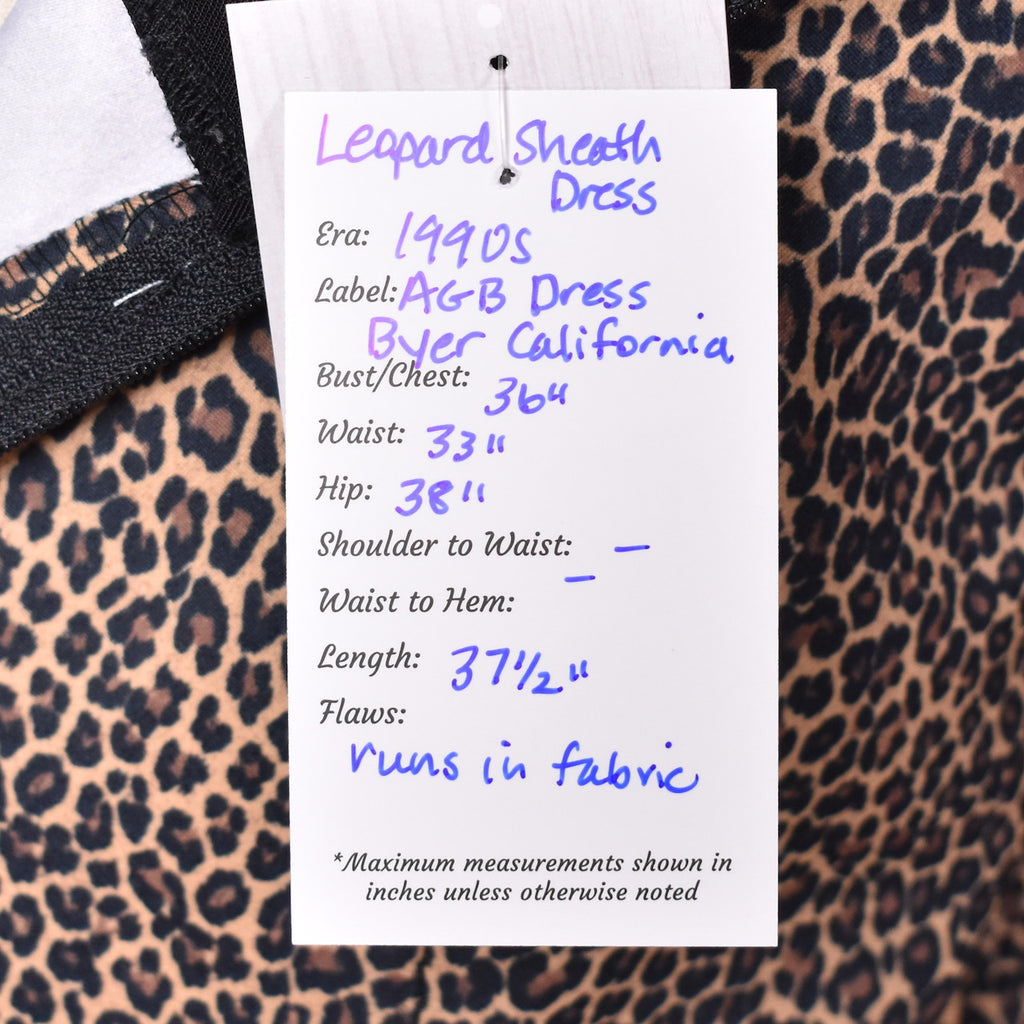 Leopard Sheath
Dress
Era: 1990s
Label: AGB Dress
Byer California
Bust/Chest: 36"
Waist: 33"
Hip: 38"
Shoulder to Waist: –
Waist to Hem: –
Length: 37 1/2"
Flaws:
runs in fabric
*Maximum measurements shown in
inches unless otherwise noted